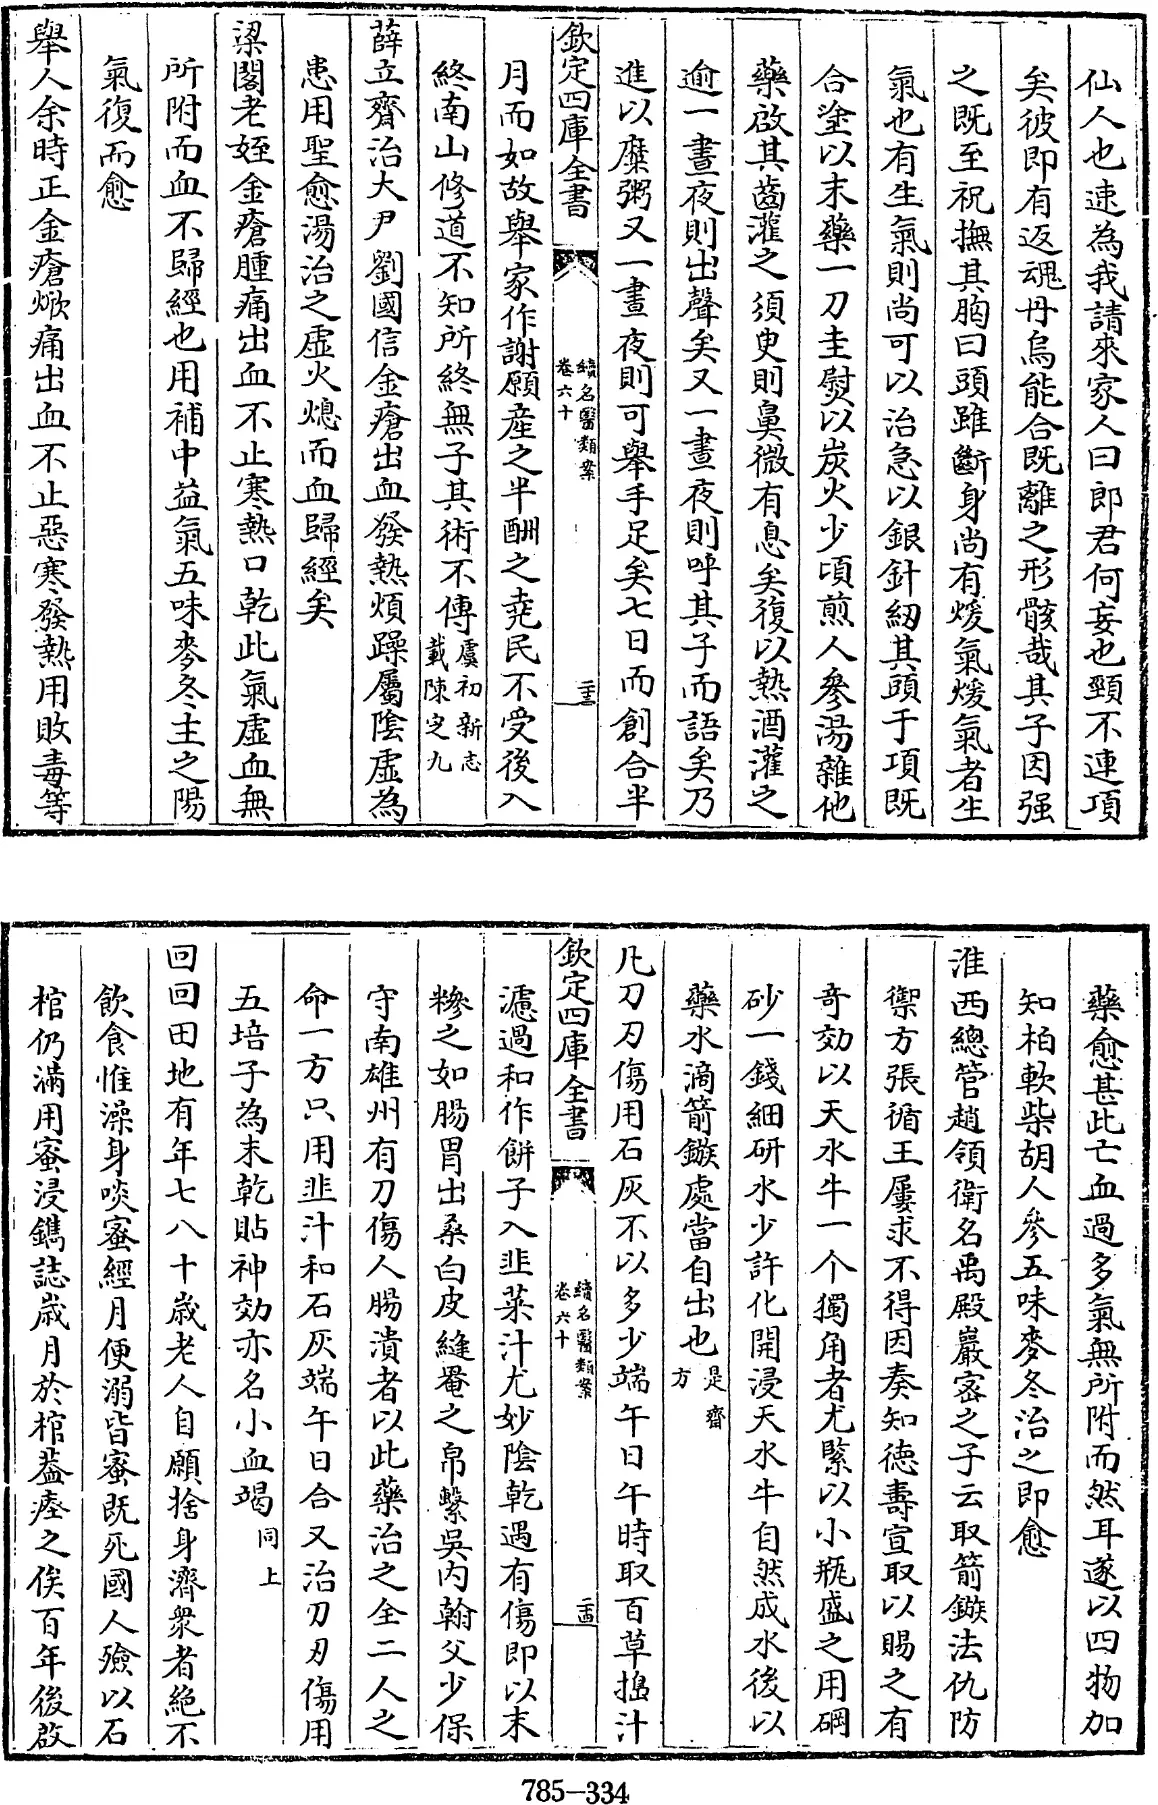 仙人也速為我請來家人曰郎君何妄也頸不連項
矣彼即有返魂丹烏能合既離之形骸哉其子因强
之既至祝撫其胸曰頭雖斷身尚有煖氣煖氣者生
氣也有生氣則尚可以治急以銀針紉其頭于項既
合塗以末藥一刀圭熨以炭火少頃煎人參湯雜他
藥啟其齒灌之須臾則鼻微有息矣復以熱酒灌之
逾一晝夜則出聲矣又一晝夜則呼其子而語矣乃
進以糜粥又一晝夜則可舉手足矣七日而創合半
欽定四庫全書
續名醫類案
卷六十
二十三
月而如故舉家作謝願産之半酬之堯民不受後入
終南山修道不知所終無子其術不傳虞初新志
載陳定九
薛立齋治大尹劉國信金瘡出血發熱煩躁屬陰虛為
患用聖愈湯治之虛火熄而血歸經矣
梁閣老姪金瘡腫痛出血不止寒熱口乾此氣虛血無
所附而血不歸經也用補中益氣五味麥冬主之陽
氣復而愈
舉人余時正金瘡焮痛出血不止惡寒發熱用敗毒等
藥愈甚此亡血過多氣無所附而然耳遂以四物加
知柏軟柴胡人參五味麥冬治之即愈
淮西總管趙領衛名禹殿巖密之子云取箭鏃法仇防
禦方張循王屢求不得因奏知德壽宣取以賜之有
奇効以天水牛一个獨角者尤緊以小瓶盛之用硇
砂一錢細研水少許化開浸天水牛自然成水後以
藥水滴箭鏃處當自出也是齋
方
凡刀刃傷用石灰不以多少端午日午時取百草搗汁
欽定四庫全書
續名醫類案
卷六十
二十四
濾過和作餅子入韭菜汁尤妙陰乾遇有傷即以末
糝之如腸胃出桑白皮縫罨之帛繫吳内翰父少保
守南雄州有刀傷人腸潰者以此藥治之全二人之
命一方只用韭汁和石灰端午日合又治刀刃傷用
五培子為末乾貼神効亦名小血竭同上
回回田地有年七八十歲老人自願捨身濟衆者絶不
飲食惟澡身啖蜜經月便溺皆蜜既死國人殮以石
棺仍滿用蜜浸鐫誌歲月於棺葢瘞之俟百年後啟
785-334